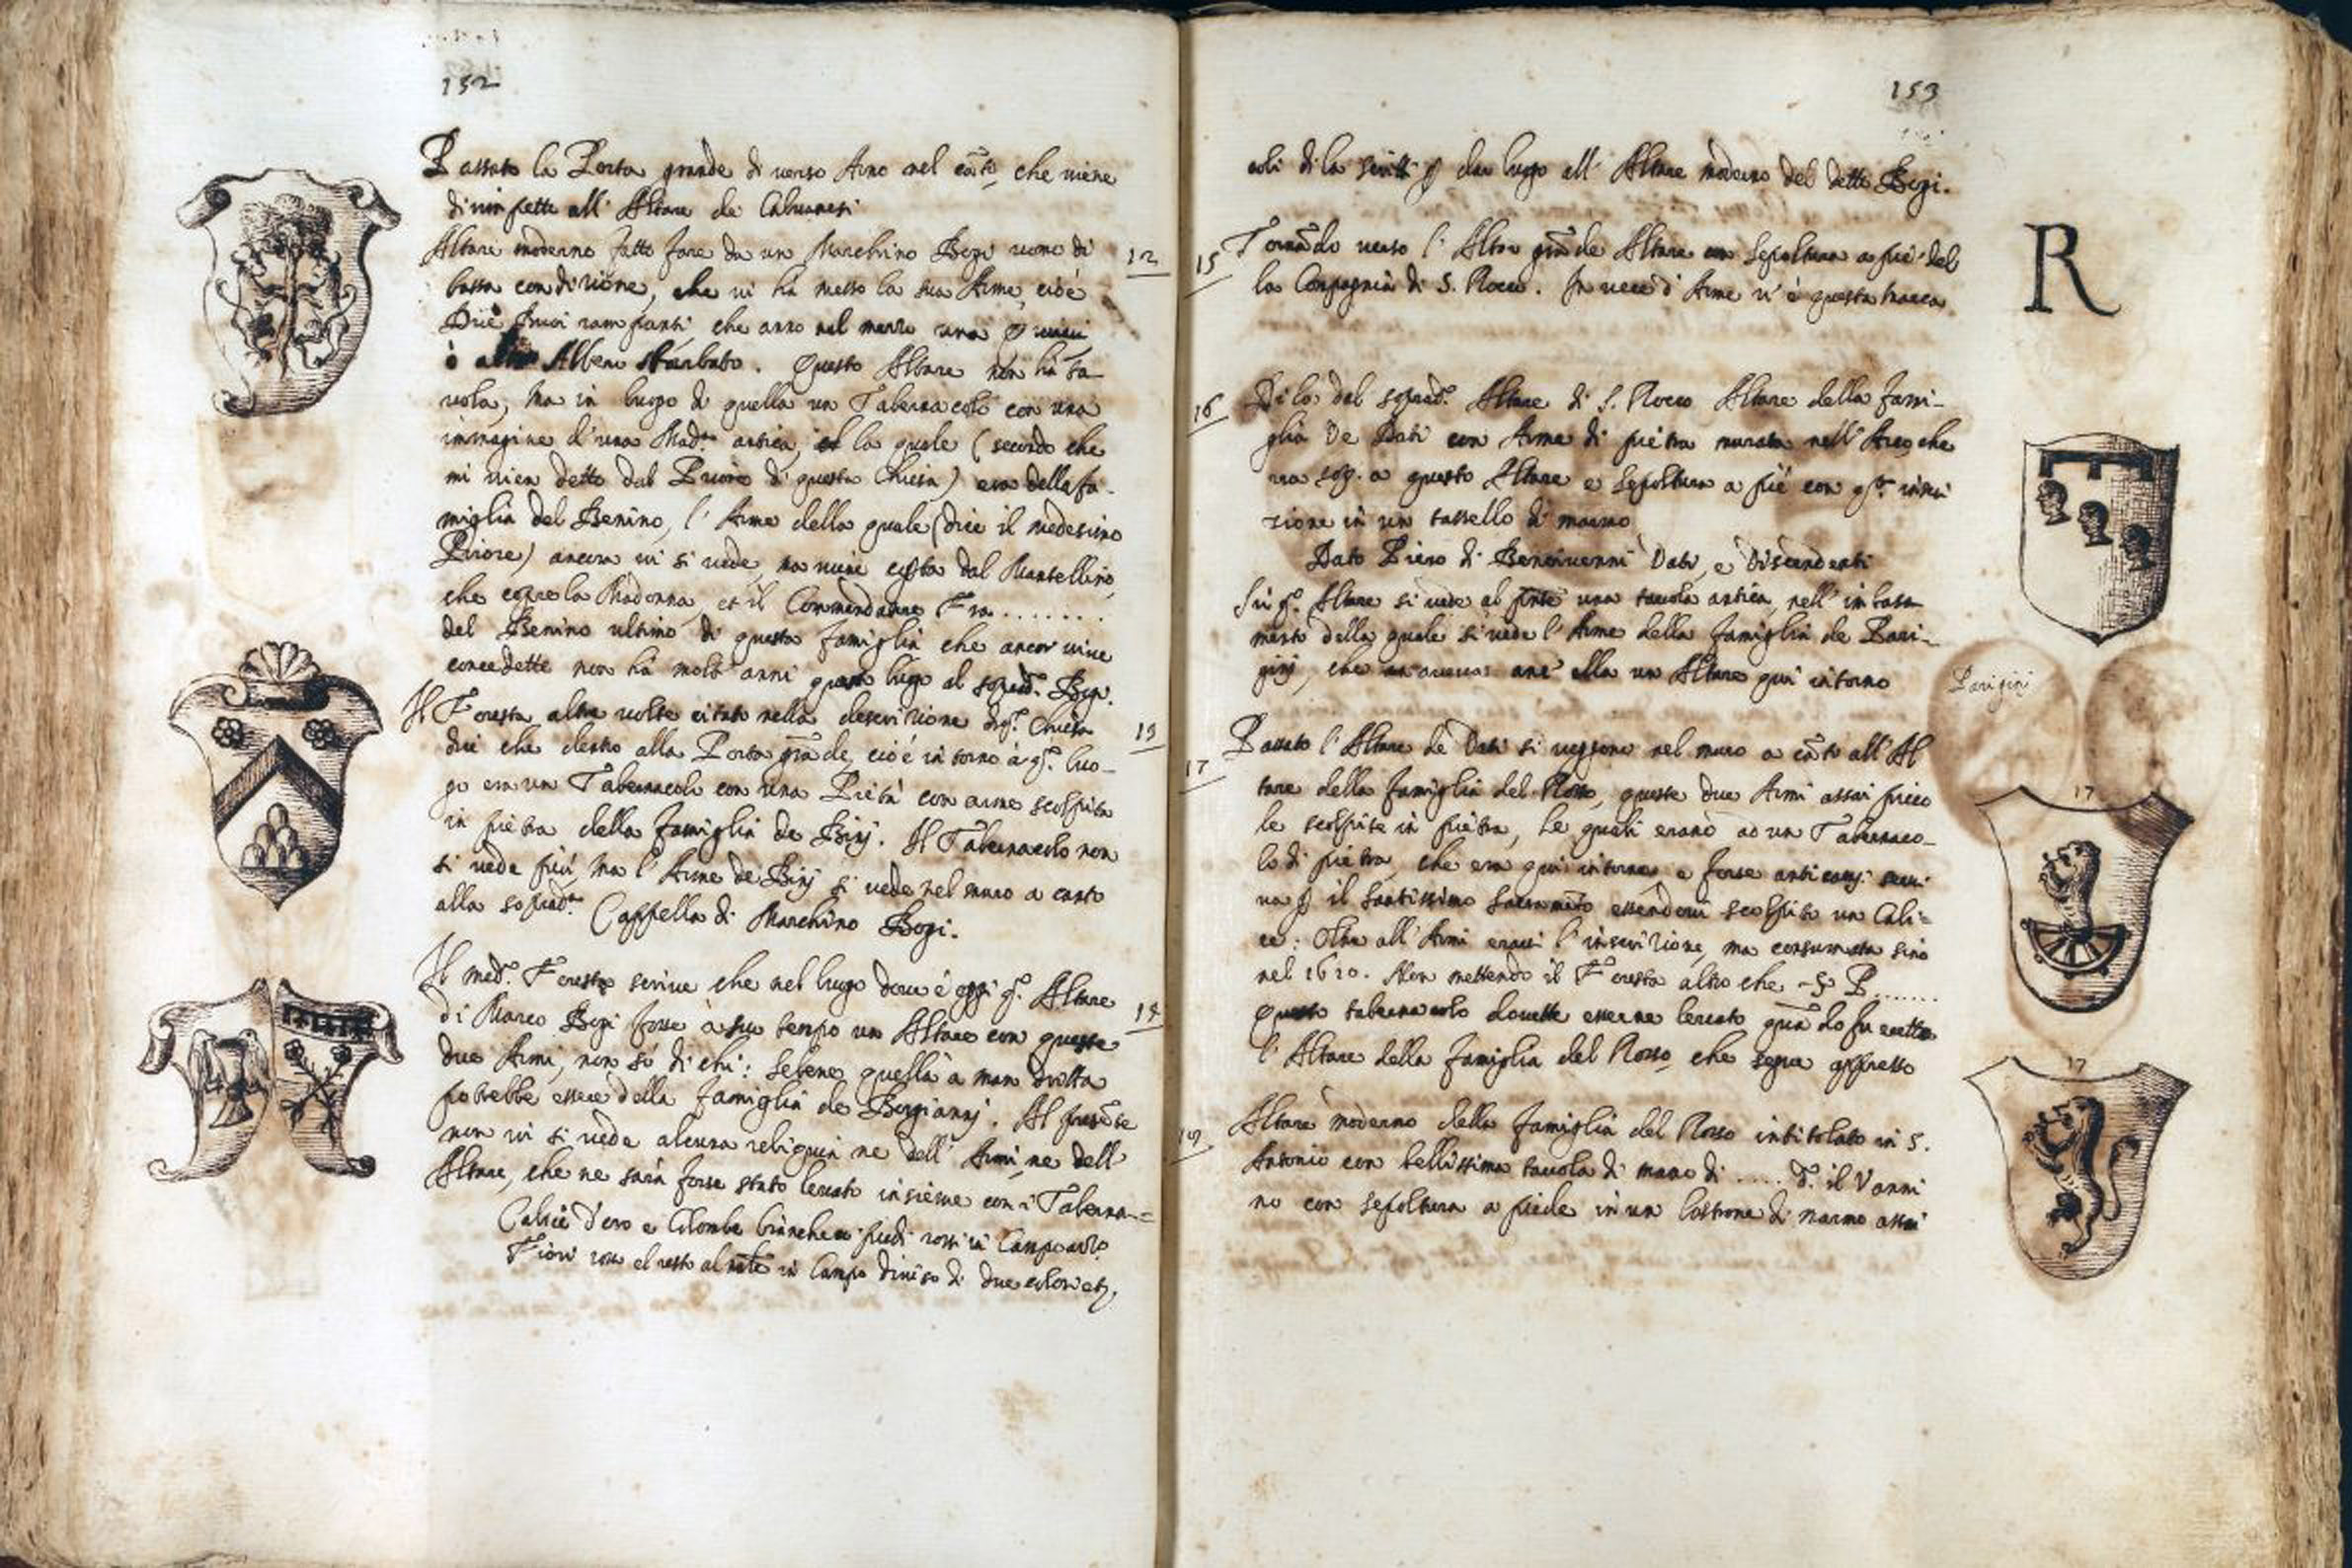 152
Passato la Porta grande di verso Arno nel cāto, che viene
dirimpetto all' Altare de Calvanesi
Altare moderno fatto fare da un Marchino Bogi uomo di
12
bassa condizione, che vi hà messo la sua Arme, cioè
Due Buoi rampanti che anno nel mezzo una
ò altro Albero sbarbato. Questo Altare non hà ta-
vola, Ma in luogo di quella un Tabernacolo con una
immagine d'una Mad.na antica, la quale (secondo che
mi vien detto dal Priore di questa Chiesa) era della fa-
miglia del Benino, l' Arme della quale (dice il medesimo
Priore) ancora vi si vede, ma vien coperta dal Mantellino,
che copre la Madonna, et il Commendatore Fra . . . . . . .
del Benino ultimo di questa famiglia che ancor vive
concedette non hà molti anni questo luogo al soprad.o Bogi.
Il Foresta altre volte citato nella descrizione di q.a Chiesa
13
dice che dentro alla Porta grāde, cioè intorno à q.o luo-
go era un Tabernacolo con una Pietà con arme scolpita
in pietra della famiglia de Binj. Il Tabernacolo non
si vede più, ma l' Arme de Binj si vede nel muro a canto
alla soprad.a Cappella di Marchino Bogi.
Il med.o Foresta scrive che nel luogo dove è oggi q.o Altare
di Marco Bogi fosse à suo tempo un Altare con queste
14
due Armi, non sò di chi: sebene quella à man dritta
potrebbe essere della famiglia de Borgiannj. Al presēte
non vi si vede alcuna reliquia ne dell' Armi, ne dell'
Altare, che ne sarà forse stato levato insieme con i Taberna=
Calice d'oro e Colombe bianche e piedi rossi in Campo
Fiori rossi el resto al nāle in Campo diviso di due colori etc.
153
coli di la scritti p dar luogo all' Altare moderno del detto Bogi.
15
Tornādo verso l' Altar grāde Altare con sepoltura a piè del
la Compagnia di S. Rocco. In vece d' Arme v' è questa marca
R
16
Di là dal soprad.o Altare di S. Rocco Altare della fami-
glia de Dati con Arme di pietra murata nell' Arco, che
va sop.a a questo Altare e sepoltura a piè con q.ta inscri
zione in un tassello di marmo
Dato Piero di Bencivenni Dati, e Discendenti
Sù q.o Altare si vede al pnte una tavola antica, nell' imbasa
mento della quale si vede l' Arme della famiglia de Pari-
gini, che aveva anc' ella un Altare qui intorno
Parigini
17
Passato l' Altare de Dati si veggono nel muro a cāto all' Al
tare della famiglia del Rosso, queste due Armi assai picco
le scolpite in pietra, le quali erano ad un Tabernaco-
lo di pietra, che era qui intorno e forse anticam.te servi
va p il Santissimo Sacramēto essendovi scolpito un Cali=
ce: Oltre all' Armi eravi l' inscrizione, ma consumata sino
nel 1620. Non mettendo il Foresta altro che - S. P. . . . . .
Questo tabernacolo dovette esserne levato quādo fu eretto
l' Altare della famiglia del Rosso, che segue appresso
17
17
19
Altare moderno della famiglia del Rosso intitolato in S.
Antonio con bellissima tavola di mano di . . . . . D.o il Vanni
no con sepoltura a piede in un lastrone di marmo assai